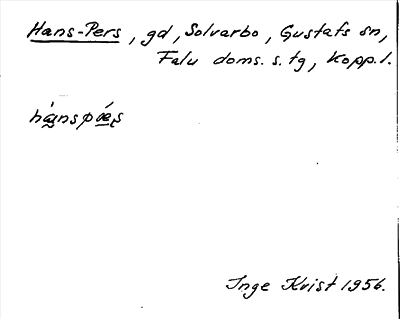 Hans-Pers, gd, Solvarbo, Gustafs sn,
Falu doms. s. tg, Kopp. l.
hànspǽṣ
Inge Kvist 1956.